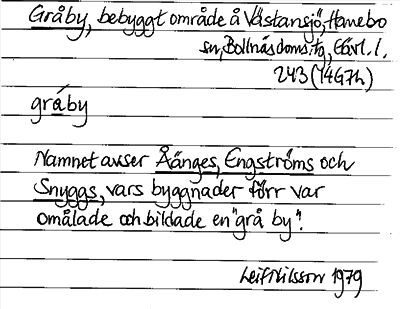 Gråby, bebyggt område å Västansjö, Hanebo
sn, Bollnäs doms.tg, Gävl. l.
243 (14G7h)
gråby
Namnet avser Åänges, Engströms och
Snyggs, vars byggnader förr var
omålade och bildade en "grå by".
Leif Nilsson 1979